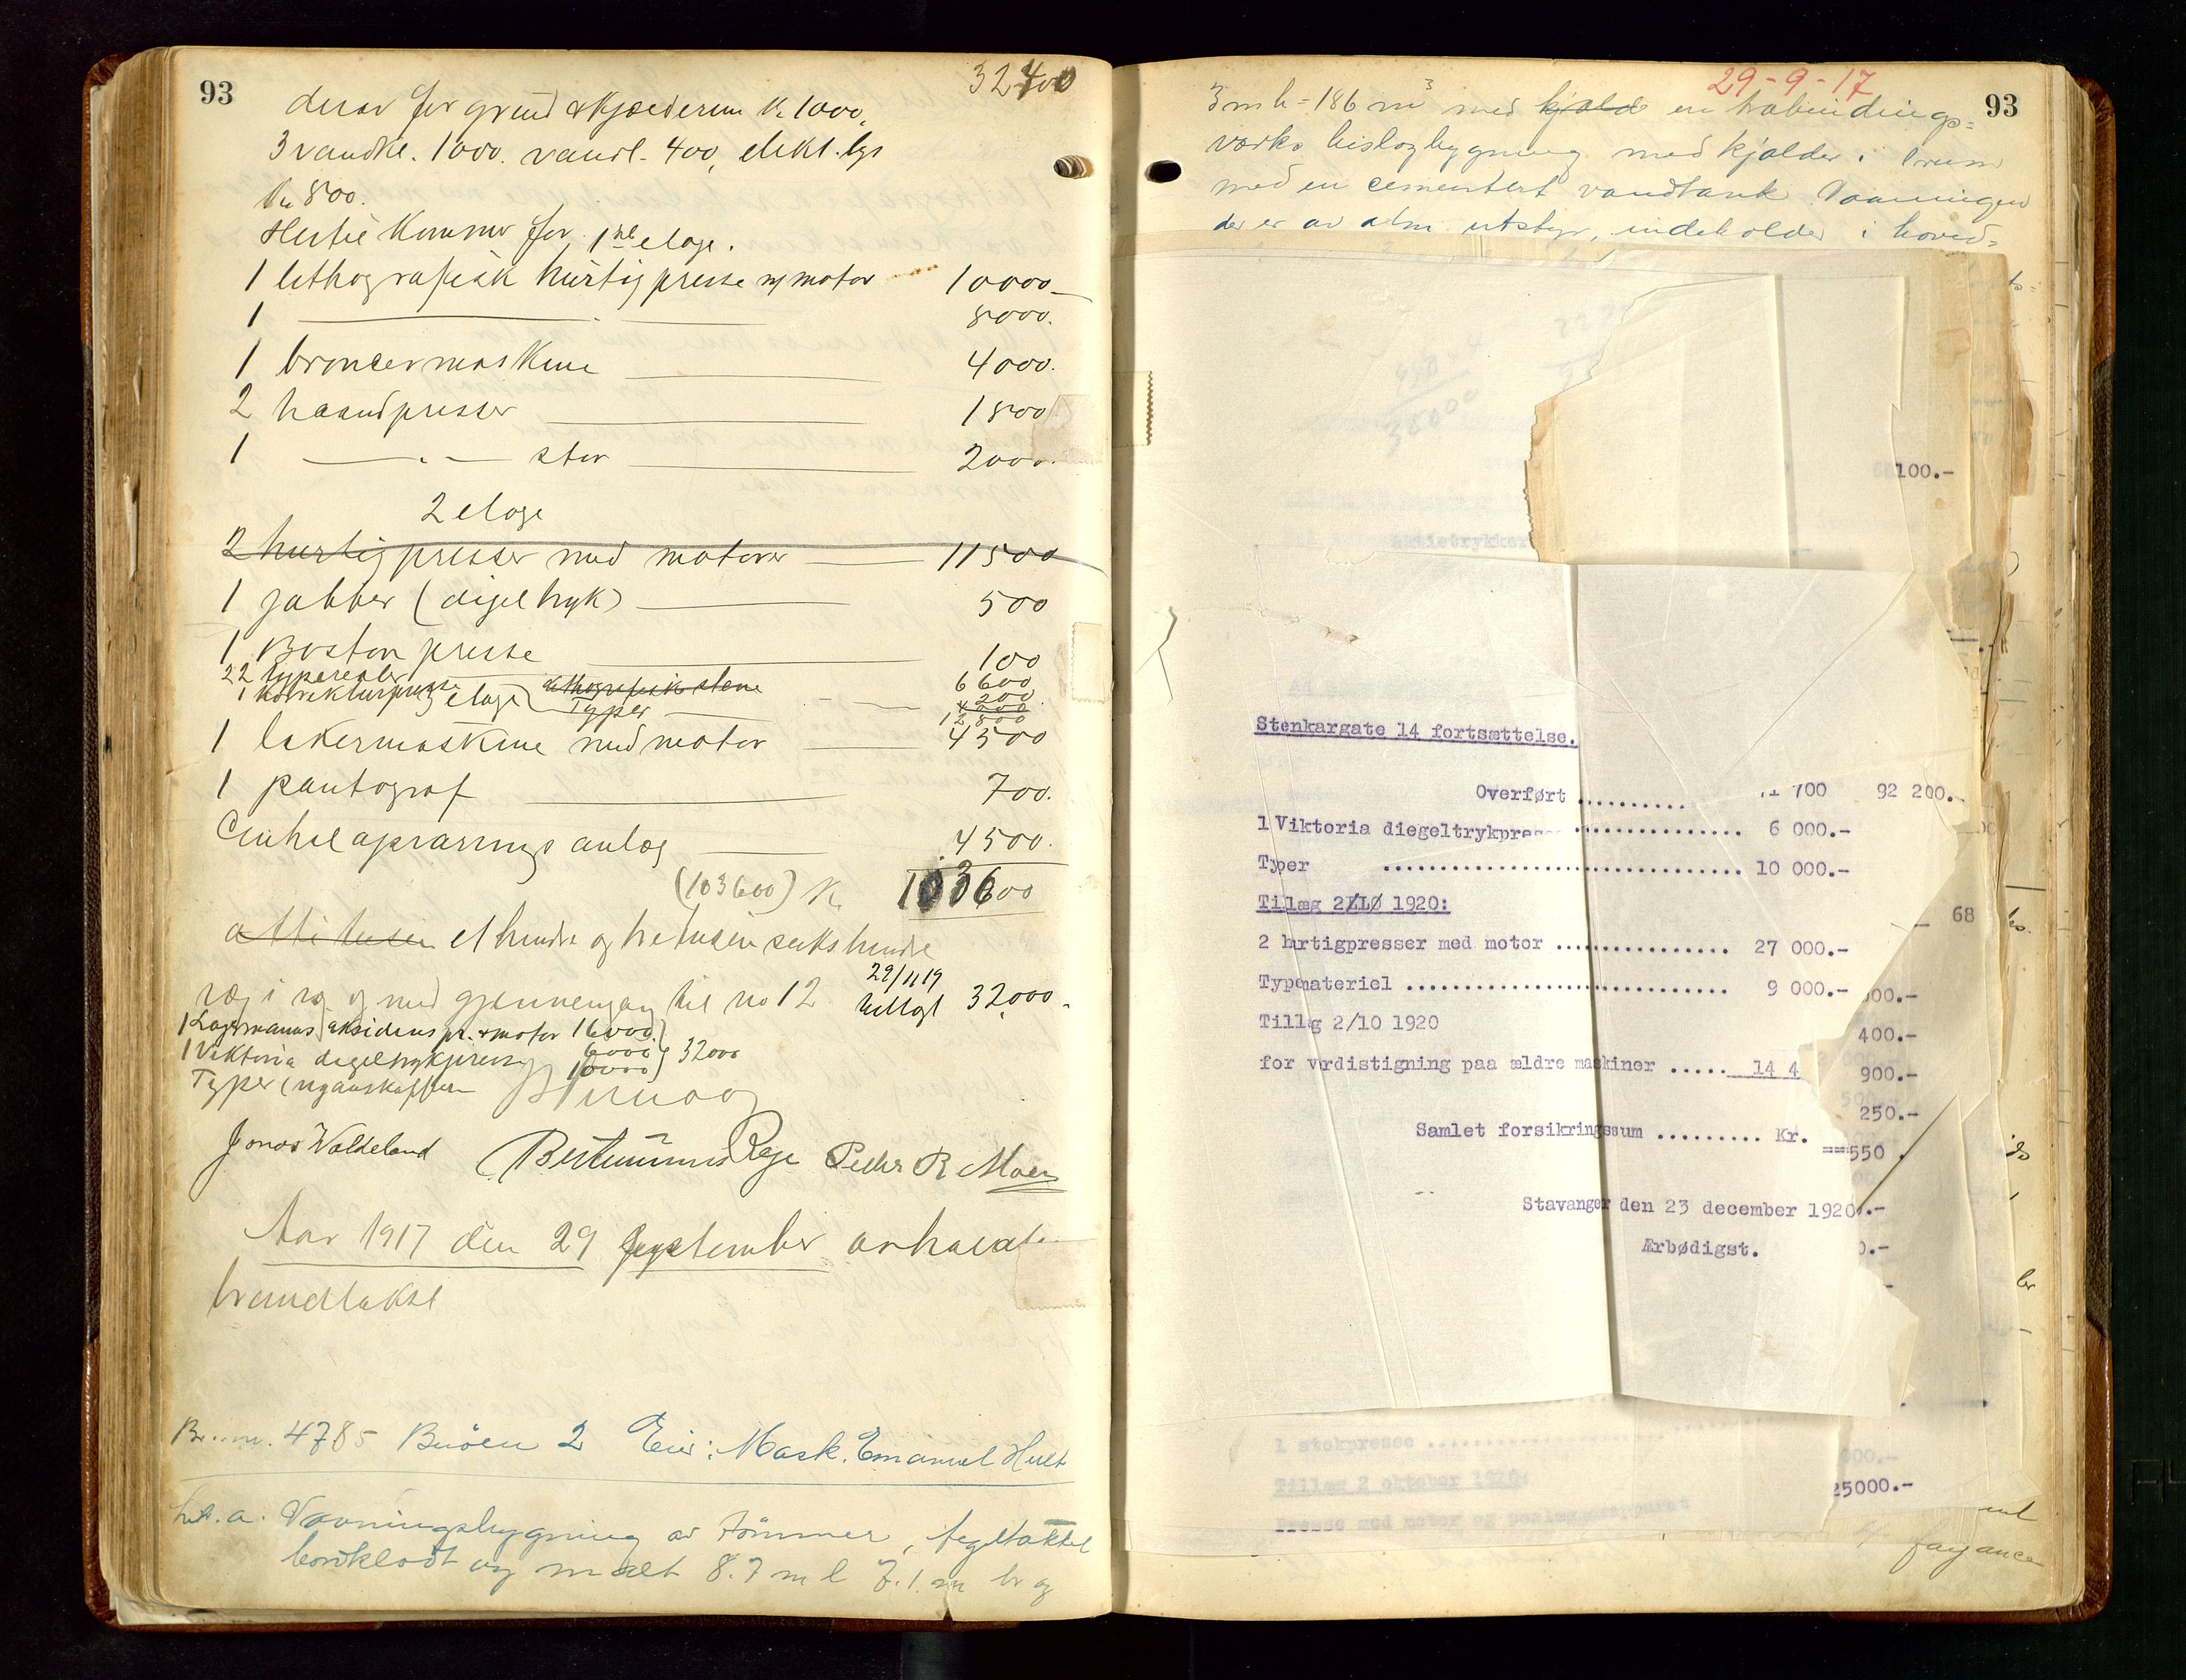 93
32400
derav for grund & kjælderum Kr 1000,
3 vandkl. 1000. vandl. 400, elekt. lys
Kr 800.
Hertil kommer for 1ste etage.
1 lithografisk hurtigpresse m/ motor 10000
1 — " — 8000.
1 broncermaskine 4000.
2 haandpresser 1800
1 — " — stor 2000.
2 etage
2 hurtigpresser med motorer 11500
1 jabber (digeltryk) 500
1 Boston presse 100
22 typerealer 6600
1 korrekturpresse 200
3 etage lithografisk stene 4200
Typer 12,800
1 lakermaskine med motor 4500
1 pantograf 700.
Centralopvarmnings anlæg 4500.
(103600) Kr 103600
otti tusen et hundre og tre tusen seks hundre
væg i væg og med gjennemgang til no 12
29/11 19 tillagt 32,000.
1 Lagermanns aksidens pr. & motor 16000
1 Viktoria digeltrykpresse 6000 32000
Typer (nyanskaffelse 10000
Jonas Valdeland Peder R Moen
Aar 1917 den 29 september avholdt
brandtakst
Br.nr. 4785 Buöen 2 Eier: Mask. Emanuel Hult
Lit. a. Vaaningsbygning av tömmer, tegltækket
bordklædt og malt 8.7 m l 7.1 m br og
29-9-17
93
3 m h = 186 m³ med kjæld en halvindings=
verks bislagbygning med kjælder i 1 rum
med en cementert vandtank. Vaaningen
der er av alm. utstyr, indeholder i hoved=
100.-
Stenkargate 14 fortsættelse.
Overført .......... 700 92 200.-
1 Viktoria diegeltrykpres ............... 6 000.-
Typer ............................... 10 000.-
Tilæg 2/1Ø 1920:
2 hurtigpresser med motor ............... 27 000.-
Typemateriel ............................ 9 000.-
Tillæg 2/10 1920
for værdistigning paa ældre maskiner ..... 14 4
Samlet forsikringssum ......... Kr.
Stavanger den 23 december 1920.
Ærbødigst.
68
400.-
900.-
250.-
550
1 stokpresse
Tillæg 2 oktober 1920:
25000.-
Presse med motor og paalægsapparat
fayance